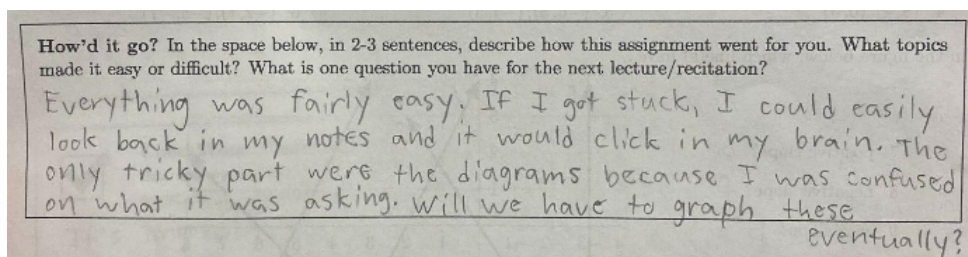 How'd it go? In the space below, in 2-3 sentences, describe how this assignment went for you. What topics
made it easy or difficult? What is one question you have for the next lecture/recitation?
Everything was fairly easy. If I got stuck, I could easily
look back in my notes and it would click in my brain. The
only tricky part were the diagrams because I was confused
on what it was asking. Will we have to graph these
eventually?